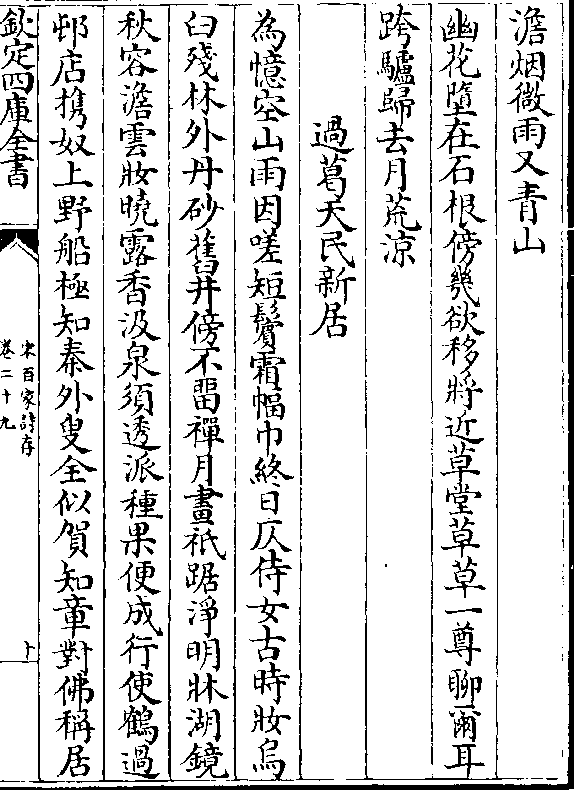 澹烟微雨又青山
幽花墮在石根傍幾欲移將近草堂草草一尊聊爾耳
跨驢歸去月荒凉
過葛天民新居
為憶空山雨因嗟短鬢霜幅巾終日仄侍女古時妝烏
臼殘林外丹砂舊井傍不畱禪月畫祇踞淨明牀湖鏡
秋容澹雲妝曉露香汲泉須透派種果便成行使鶴過
邨店携奴上野船極知秦外叟全似賀知章對佛稱居
欽定四庫全書
宋百家詩存
卷二十九
十